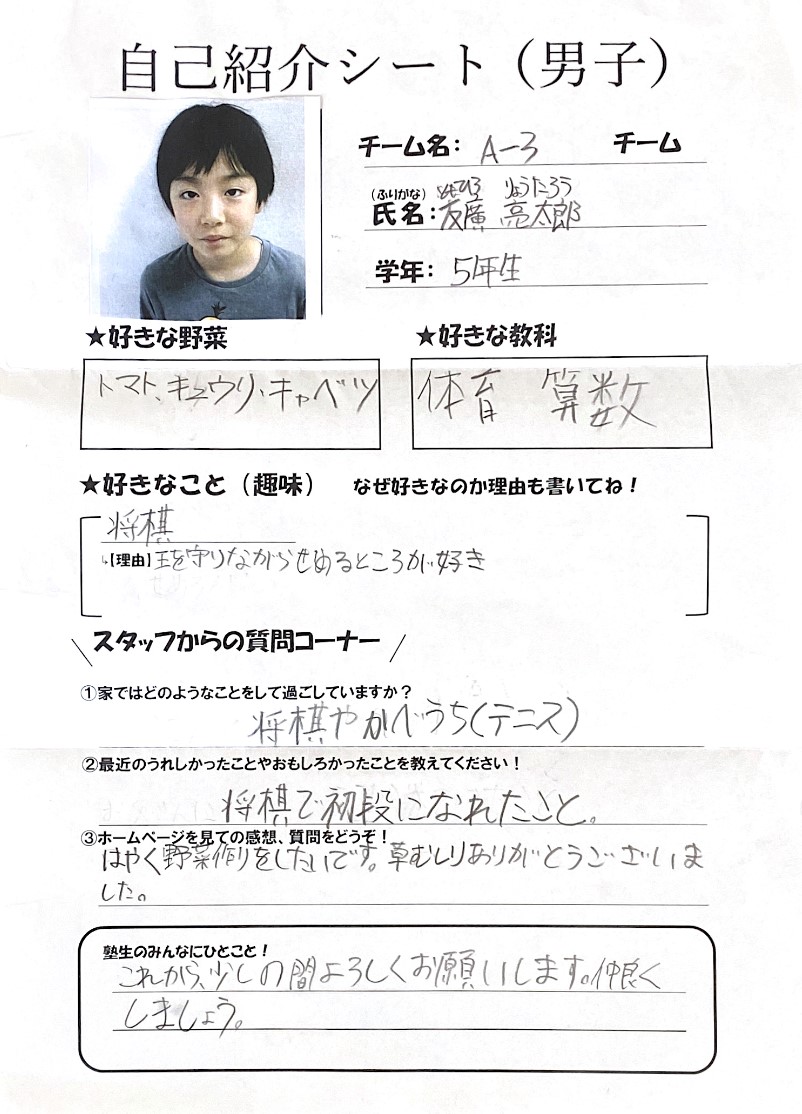 自己紹介シート（男子）
チーム名： A-3 チーム
（ふりがな） ともひろ りょうたろう
氏名：友廣 亮太郎
学年： 5年生
★好きな野菜
トマト、キュウリ、キャベツ
★好きな教科
体育 算数
★好きなこと（趣味） なぜ好きなのか理由も書いてね！
将棋
↳【理由】王を守りながらせめるところが好き
＼ スタッフからの質問コーナー ／
①家ではどのようなことをして過ごしていますか？
将棋やかべうち(テニス)
②最近のうれしかったことやおもしろかったことを教えてください！
将棋で初段になれたこと。
③ホームページを見ての感想、質問をどうぞ！
はやく野菜作りをしたいです。草むしりありがとうございま
した。
塾生のみんなにひとこと！
これから、少しの間よろしくお願いします。仲良く
しましょう。